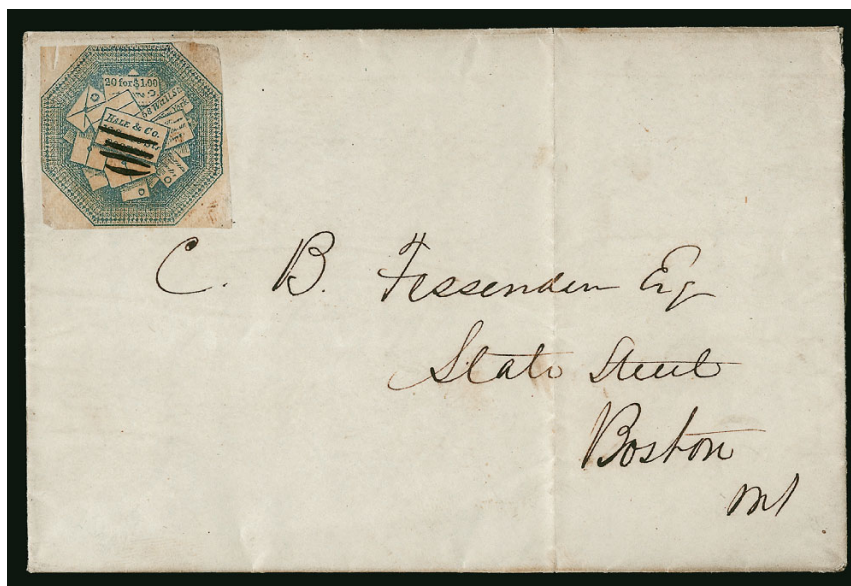 20 for $1.00
HALE & CO.
C. B. Fessenden Esq
State Street
Boston
Ms